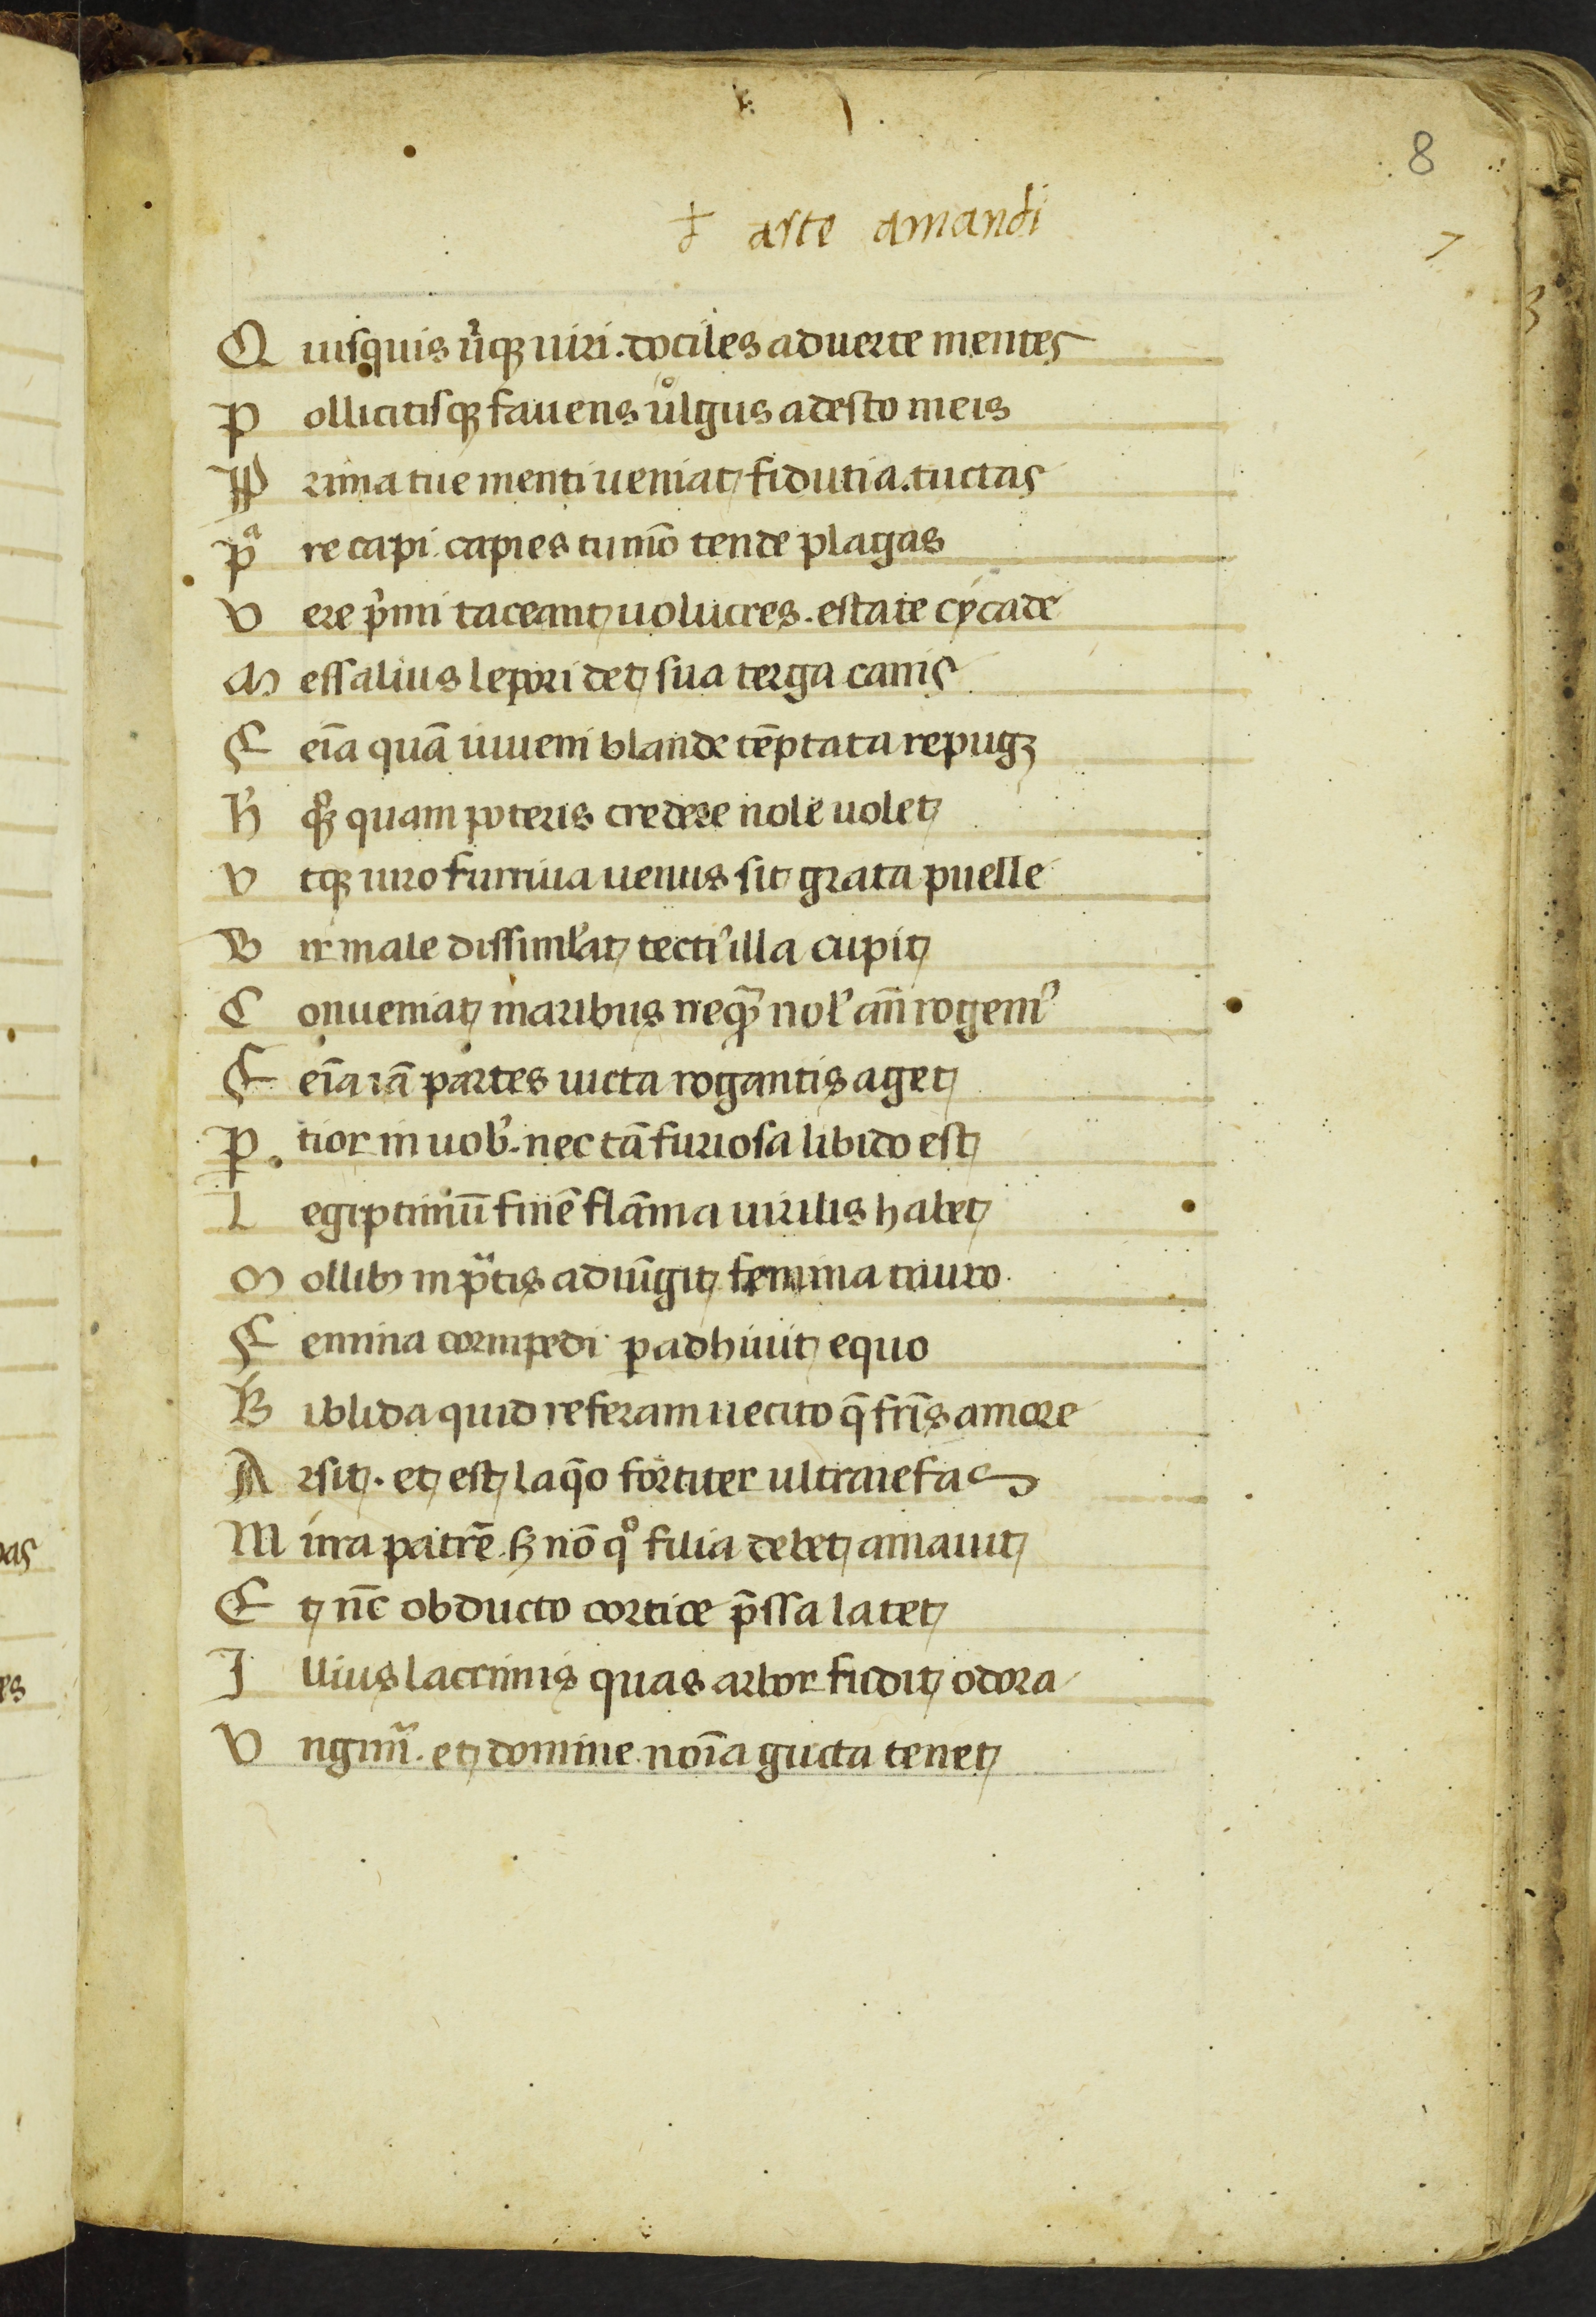 8
+ arte amandi
7
Q uisquis uƀiqꝫ uiri . dociles aduerte mentes
P ollicitisqꝫ fauens uͦlgus adesto meis
P rima tue menti ueniat fidutia . cuctas
Pᵃ re capi . capies tu mō tende plagas
V ere p̾mi taceant uolucres . estate cycade
M essalius lepori det sua terga canis
F eīa quā iuueni blande tēptata repugꝫ
h̾ qꝫ quam poteris credere nole uolet
V tqꝫ uiro furtiua uenus sic grata puelle
V ir male dissiml̾at tecti᾽ illa cupit
C onueniat maribus neqꝫ̄ nol᾽ añ rogem᾽
F eīa iā partes uicta rogantis aget
P tior in uob᾽ . nec tā furiosa libido est
L egiptimū finē flāma uirilis habet
M ollibꝫ in pᵃtis adiūgit femina tauro
F emina cornipedi p adhiuit equo
B iblida quid referam uecito q̄ frīs amore
A rsit . et est laq̄o fortiter ulta nefas
M irra patrē . sꝫ nō qͦ filia debet amauit
E t nc̄ obducto cortice p̄ssa latet
I llius lacrimis quas arbor fudit odora
V ngim᾽ . et domine noīa gucta tenet